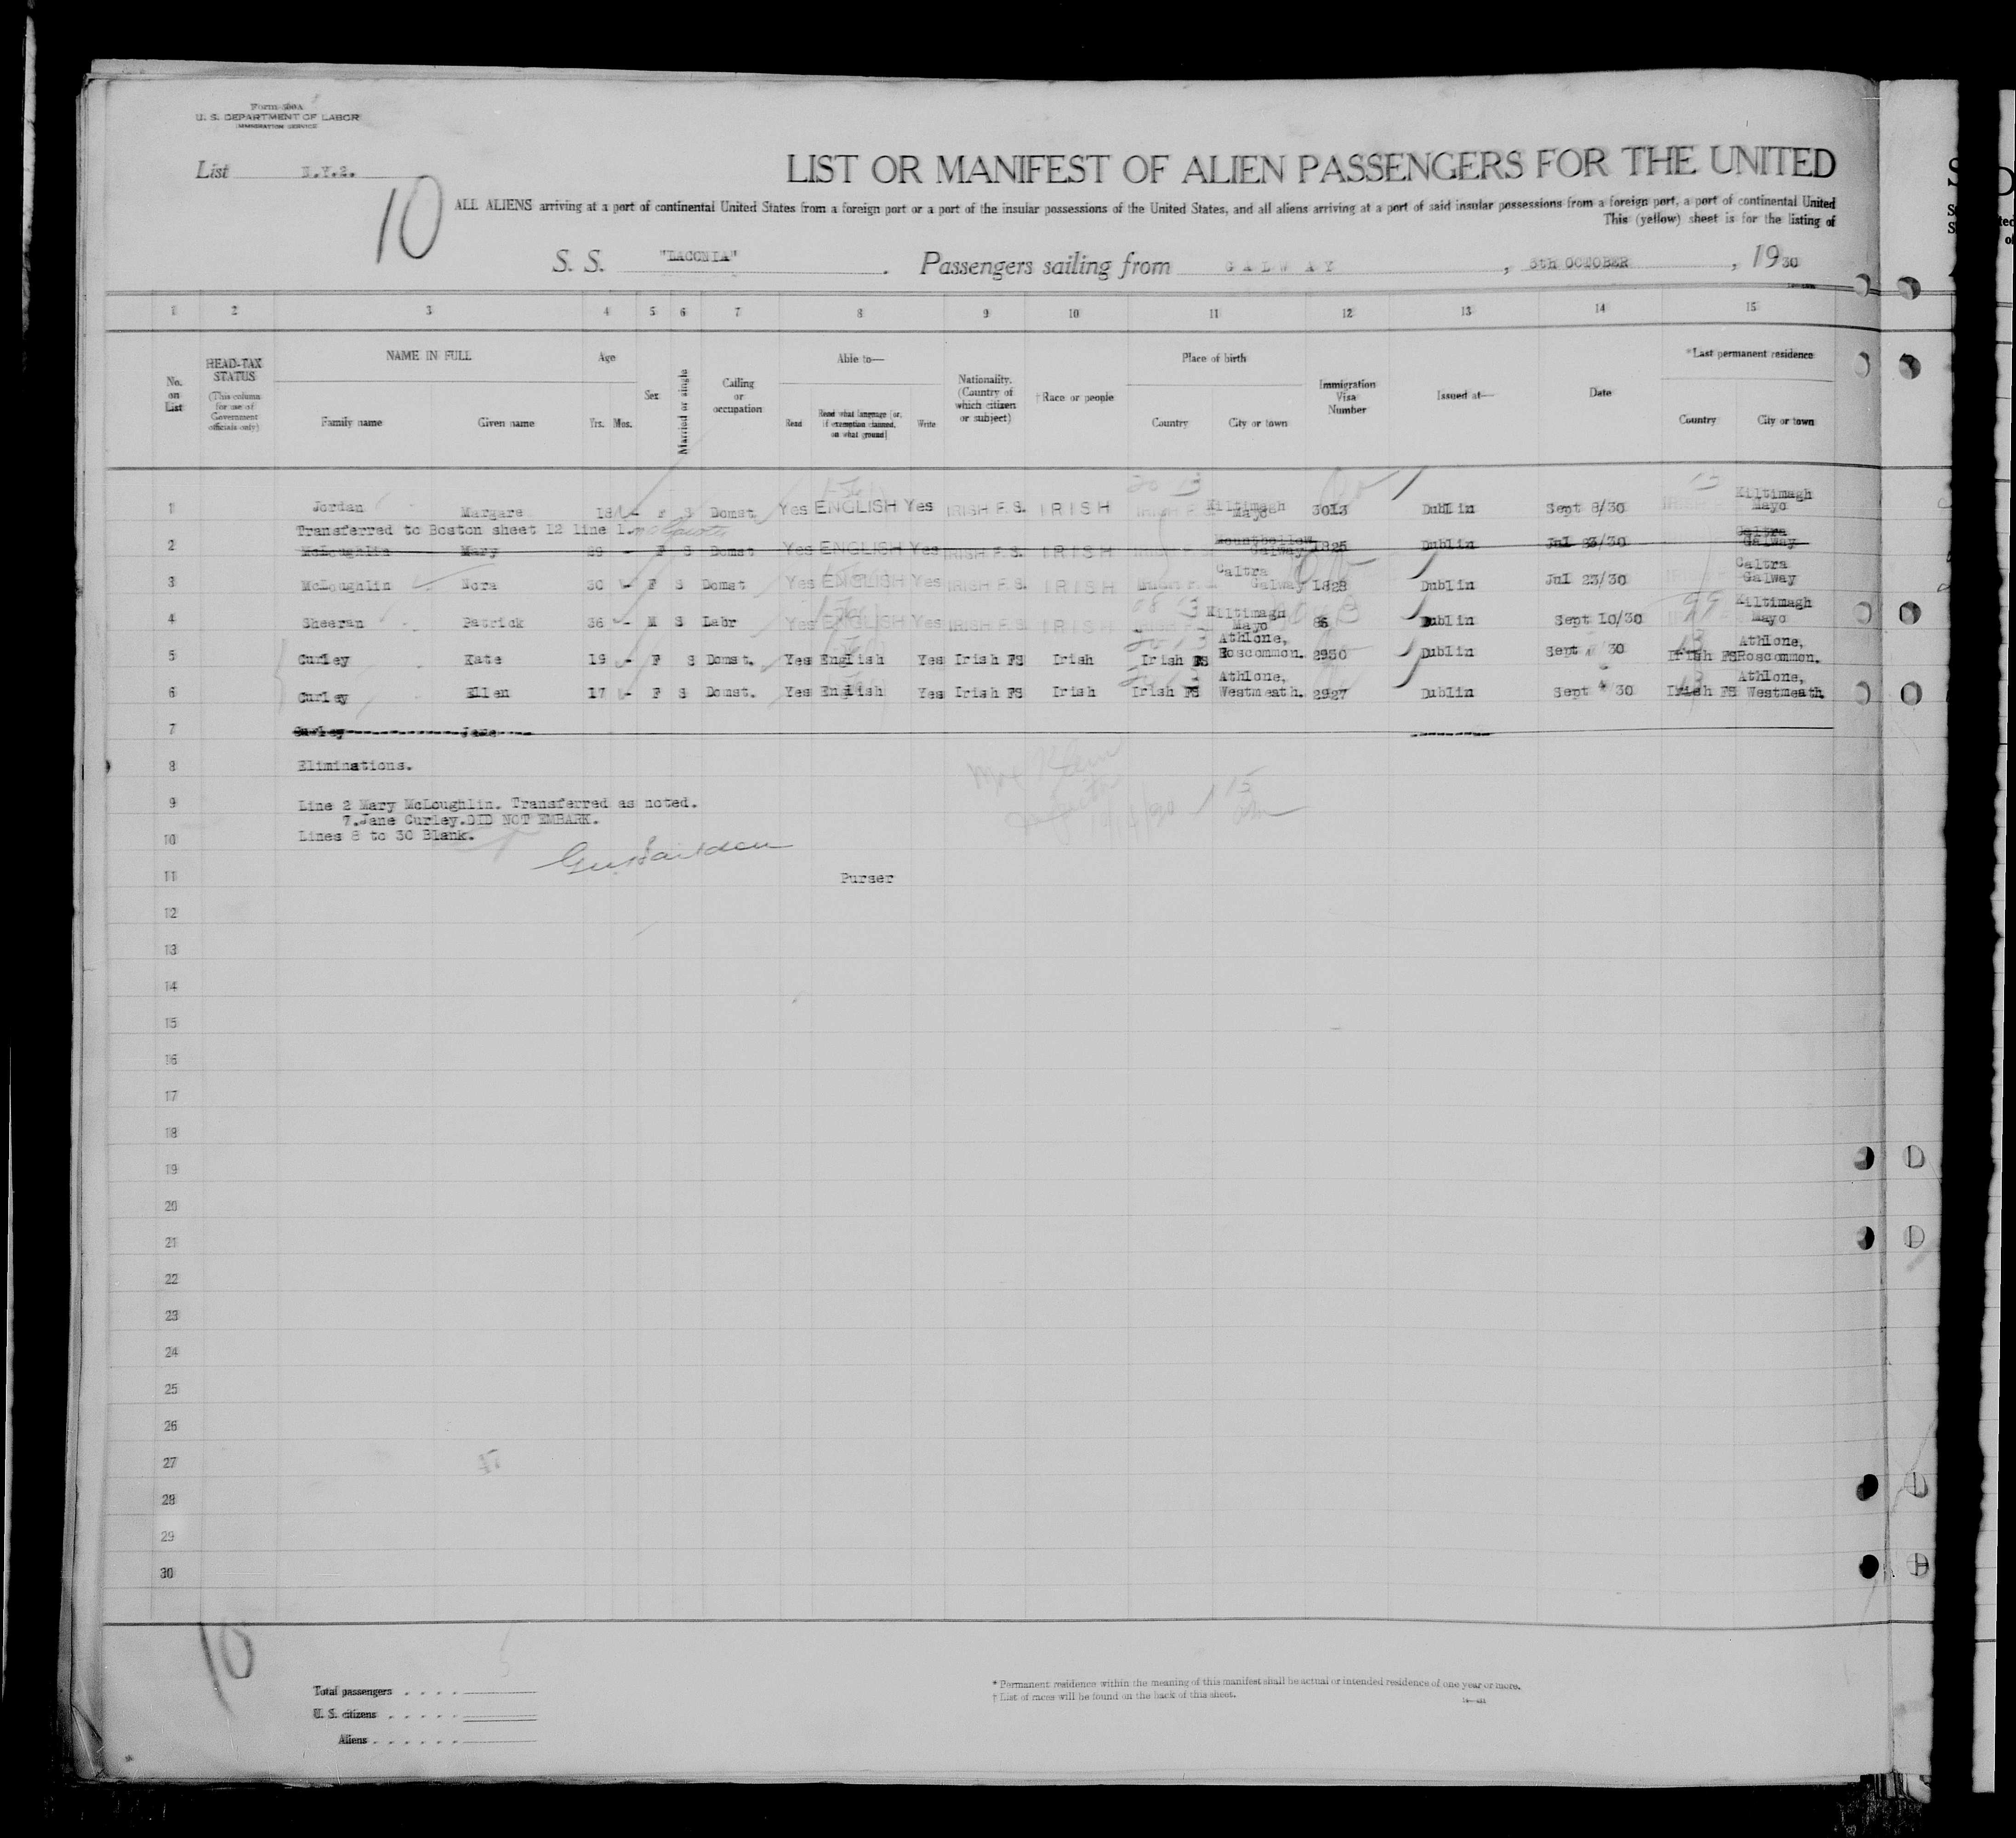 Form 500A
U. S. DEPARTMENT OF LABOR
IMMIGRATION SERVICE
List N.Y.2.
10
LIST OR MANIFEST OF ALIEN PASSENGERS FOR THE UNITED
ALL ALIENS arriving at a port of continental United States from a foreign port or a port of the insular possessions of the United States, and all aliens arriving at a port of said insular possessions from a foreign port, a port of continental United
This (yellow) sheet is for the listing of
S. S. "LACONIA" . Passengers sailing from GALWAY , 5th OCTOBER , 19 30
1 2 3 4 5 6 7 8 9 10 11 12 13 14 15
No. on List
HEAD-TAX STATUS
(This column for use of Government officials only)
NAME IN FULL
Family name Given name
Age
Yrs. Mos.
Sex
Married or single
Calling or occupation
Able to—
Read Read what language [or, if exemption claimed, on what ground] Write
Nationality. (Country of which citizen or subject)
†Race or people
Place of birth
Country City or town
Immigration Visa Number
Issued at—
Date
*Last permanent residence
Country City or town
1 Jordan Margare 18 - F S Domst Yes ENGLISH Yes IRISH F.S. IRISH Kiltimagh Mayo 3013 Dublin Sept 8/30 Kiltimagh Mayo
Transferred to Boston sheet 12 line 1.
2 McLoughlin Mary F S Domst Yes ENGLISH Yes IRISH F.S. IRISH Mountbellow Galway 1825 Dublin Jul 23/30 Caltra Galway
3 McLoughlin Nora 30 - F S Domst Yes ENGLISH Yes IRISH F.S. IRISH Caltra Galway 1828 Dublin Jul 23/30 Caltra Galway
4 Sheeran Patrick 36 - M S Labr Yes ENGLISH Yes IRISH F.S. IRISH Kiltimagh Mayo 86 Dublin Sept 10/30 Kiltimagh Mayo
5 Curley Kate 19 - F S Domst. Yes English Yes Irish FS Irish Irish FS Athlone, Roscommon. 2930 Dublin Sept 30 Irish FS Athlone, Roscommon.
6 Curley Ellen 17 - F S Domst. Yes English Yes Irish FS Irish Irish FS Athlone, Westmeath. 2927 Dublin Sept 30 Irish FS Athlone, Westmeath.
7 Curley Jane
8 Eliminations.
9 Line 2 Mary McLoughlin. Transferred as noted.
7.Jane Curley.DID NOT EMBARK.
10 Lines 8 to 30 Blank.
11 Purser
12
13
14
15
16
17
18
19
20
21
22
23
24
25
26
27
28
29
30
10
Total passengers
U. S. citizens
Aliens
* Permanent residence within the meaning of this manifest shall be actual or intended residence of one year or more.
† List of races will be found on the back of this sheet.